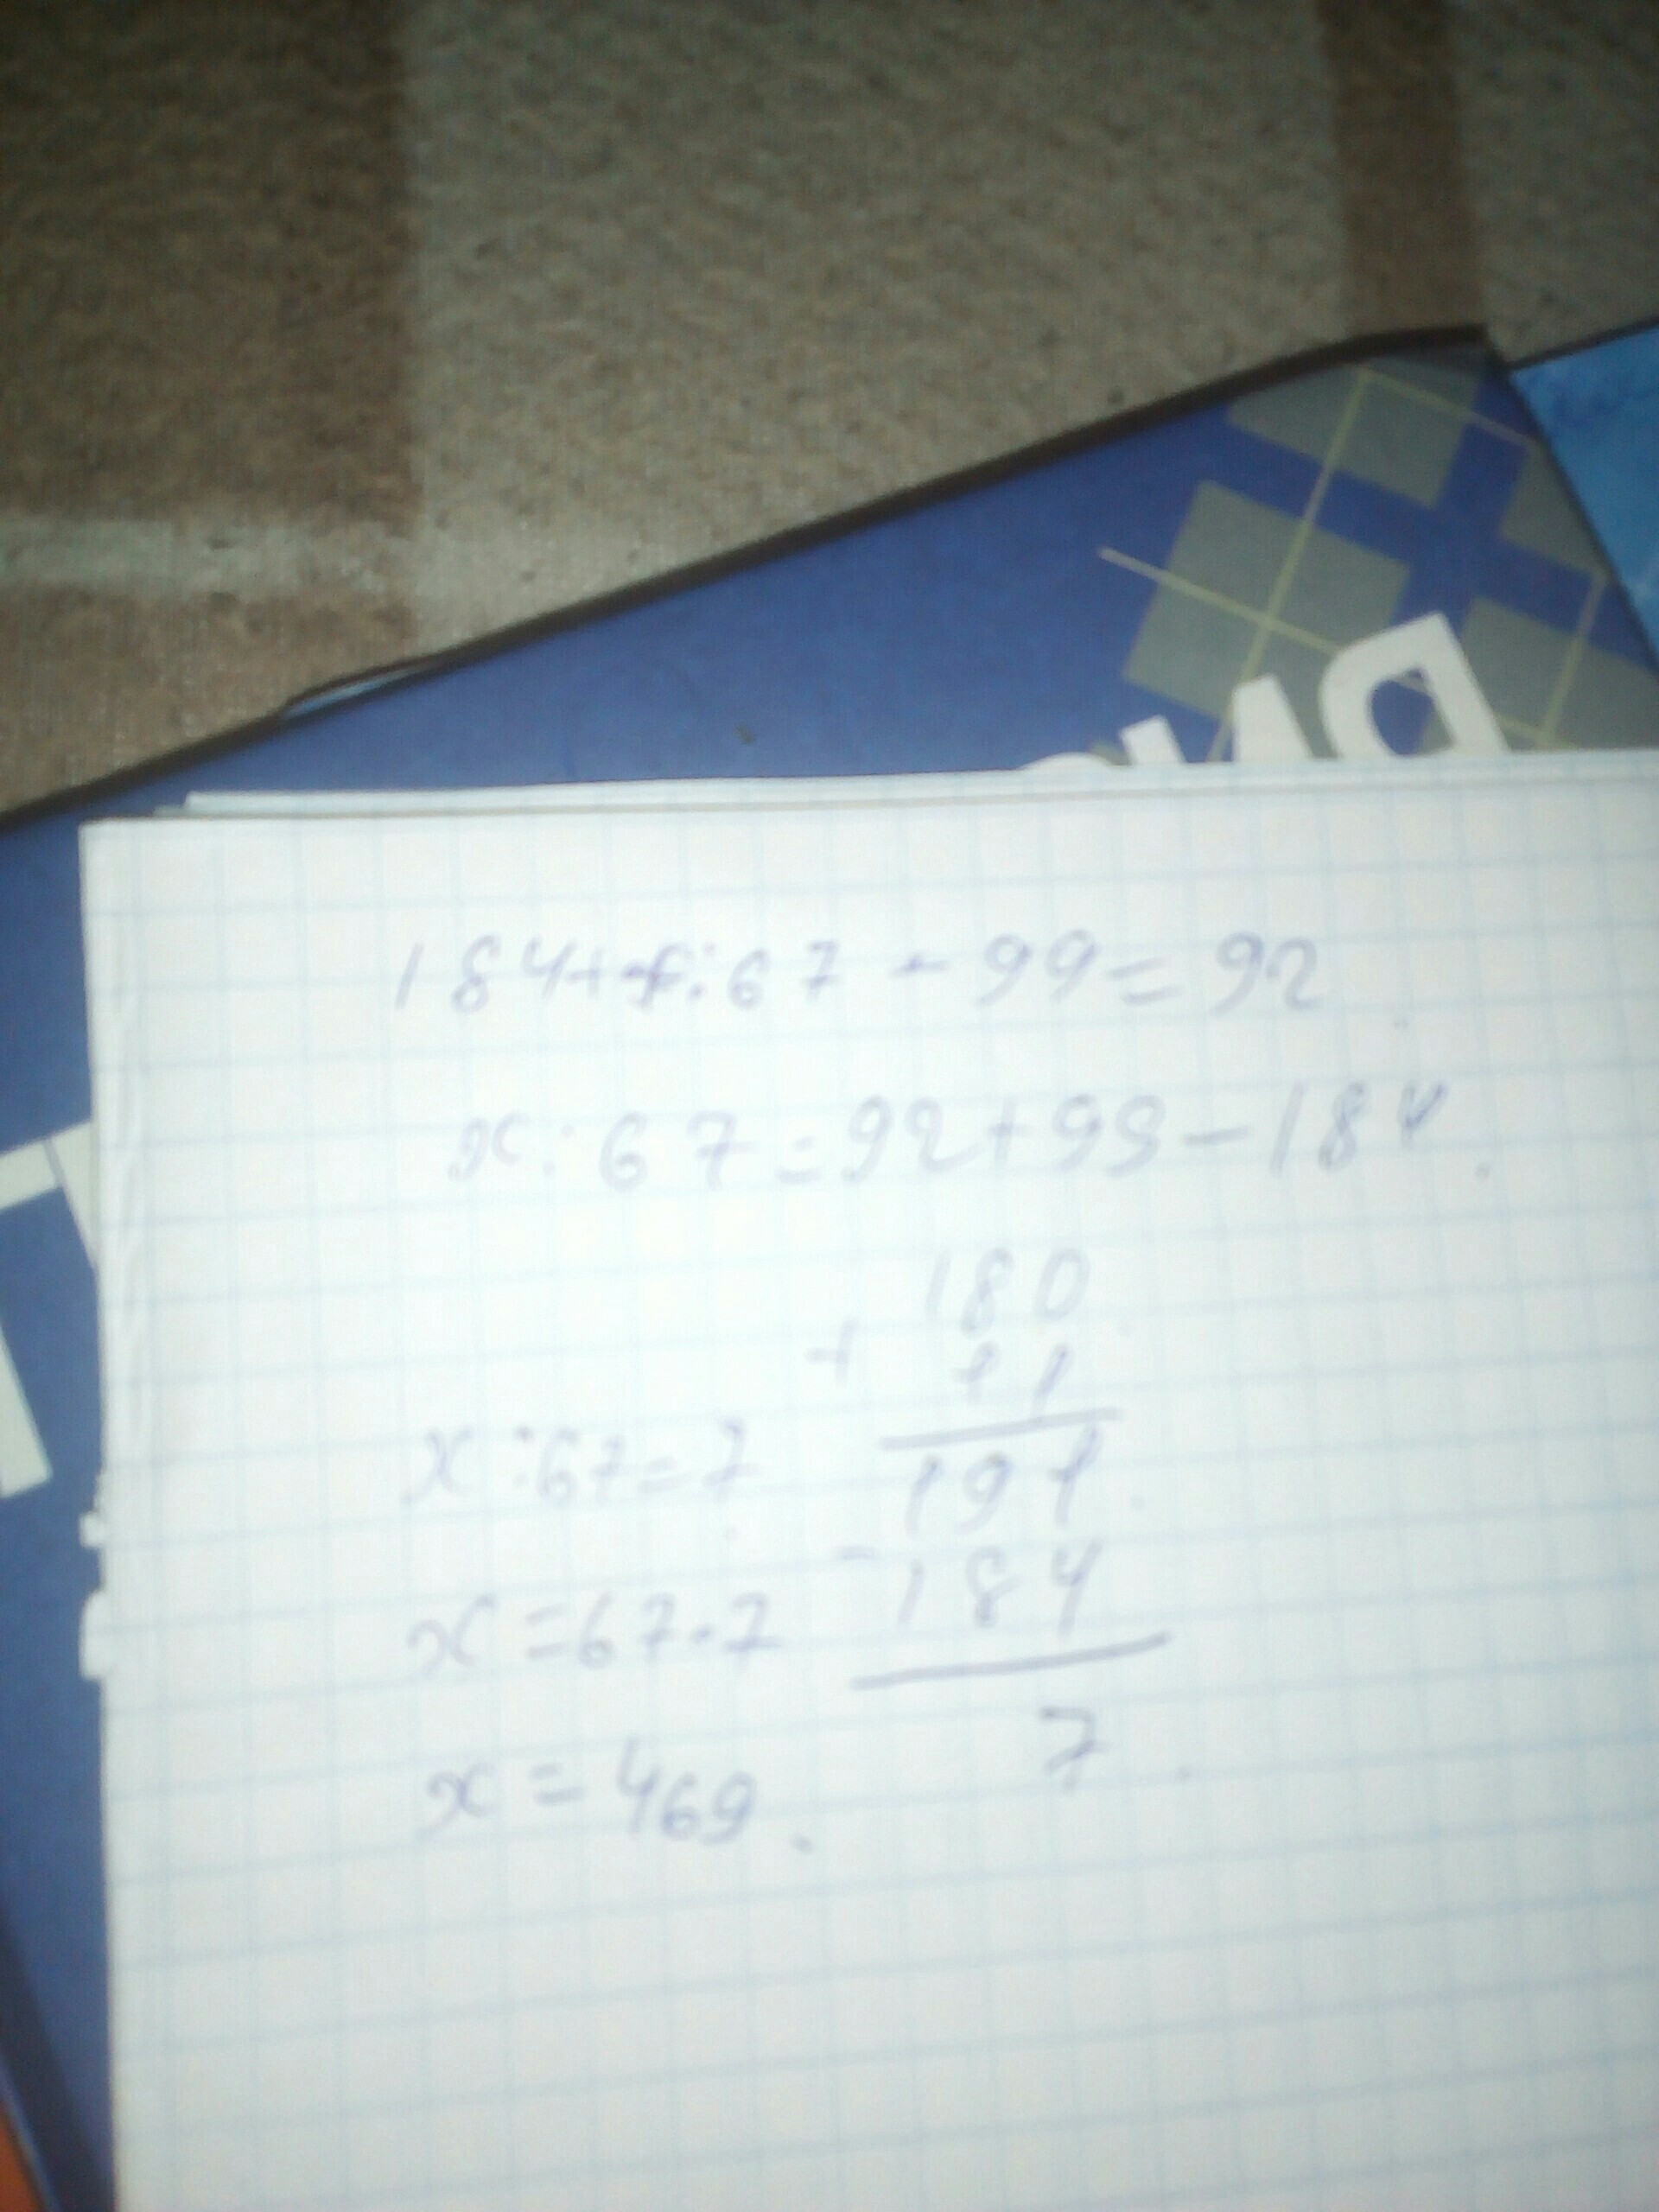 184+x:67-99=92
x:67=92+99-184
180
+ 11
191
-184
7
x:67=7
x=67·7
x=469.